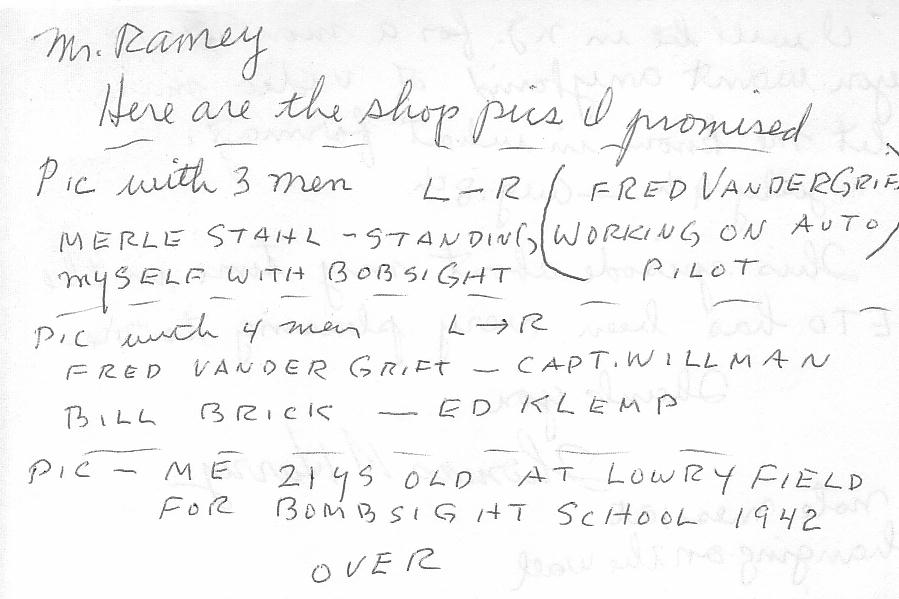 Mr. Ramey
Here are the shop pics I promised
Pic with 3 men L-R (FRED VANDERGRIF
MERLE STAHL - STANDING WORKING ON AUTO
MYSELF WITH BOBSIGHT PILOT)
Pic with 4 men L→R
FRED VANDER GRIFT - CAPT. WILLMAN
BILL BRICK - ED KLEMP
PIC - ME 21 YS OLD AT LOWRY FIELD
FOR BOMBSIGHT SCHOOL 1942
OVER